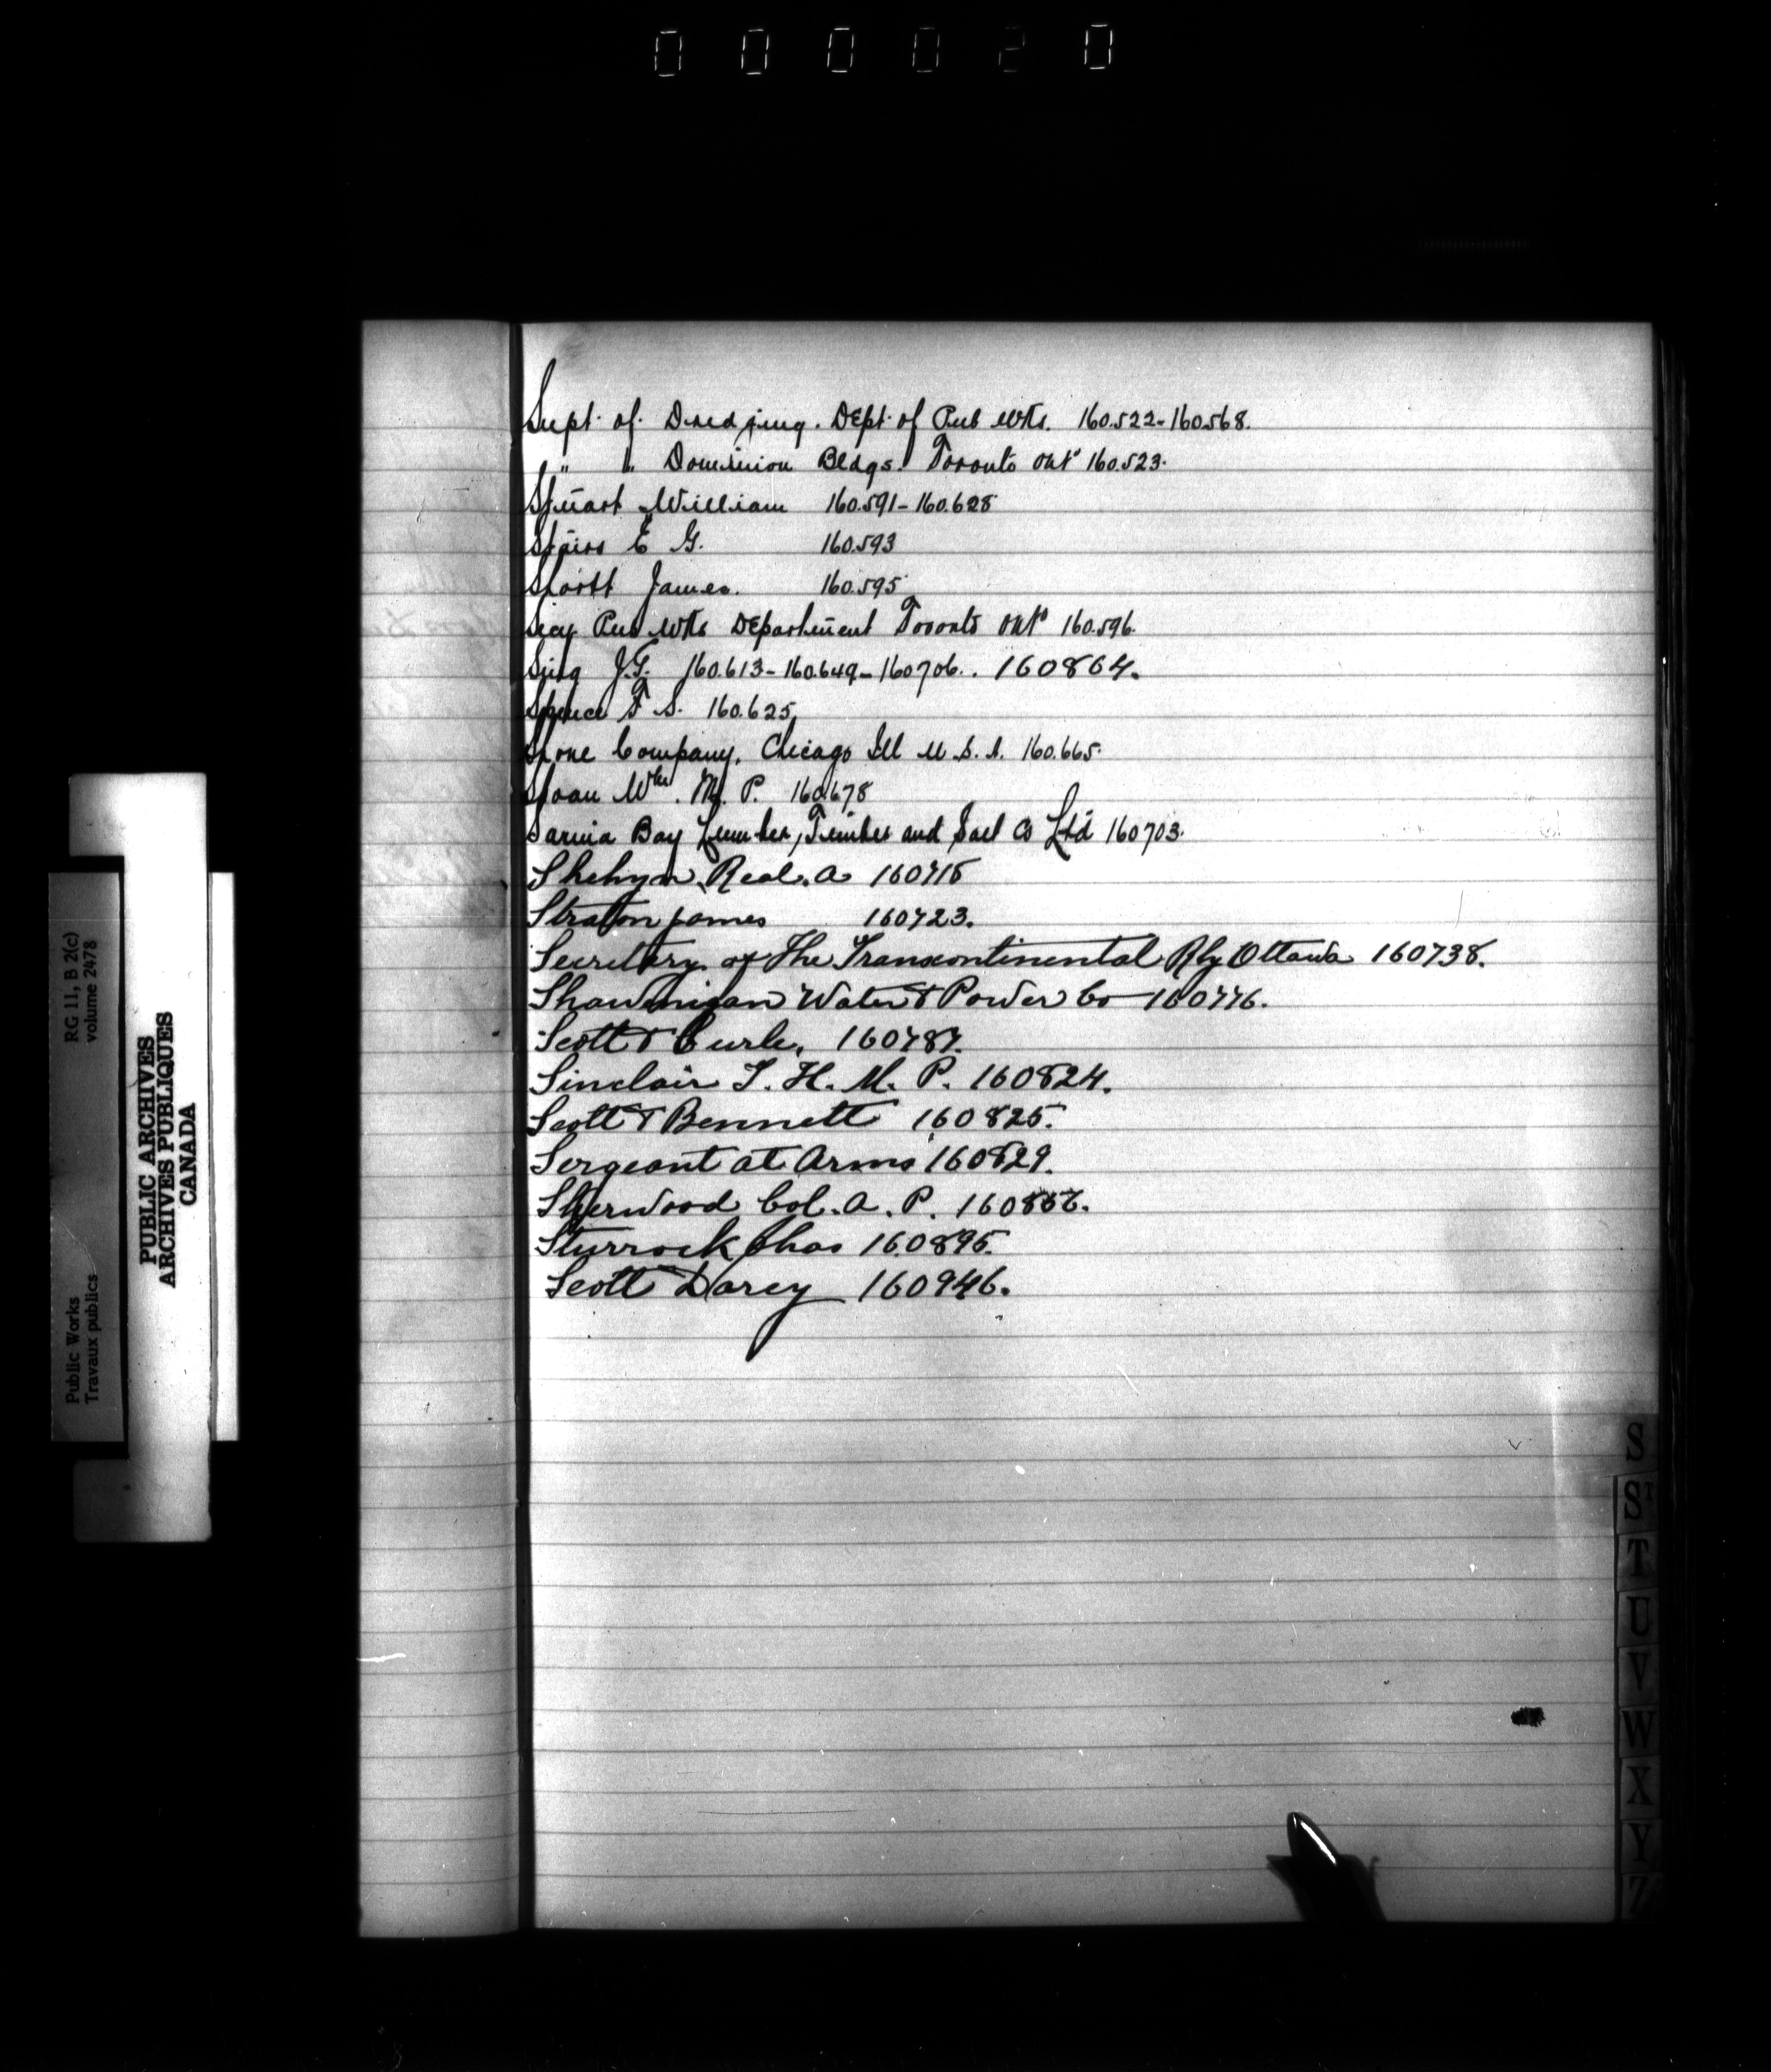 000020
Supt. of. Dredging. Dept. of Pub Wks. 160.522-160568.
" " Dominion Bldgs. Toronto Ont 160.523.
Stuart William 160.591-160.628
Stairs E G. 160.593
Scott James. 160.595
Secy Pub Wks Department Toronto Ont 160.596.
Sing J.G. 160.613-160.649-160706.. 160864.
Spence F S. 160.625
Stone Company, Chicago Ill U.S.A. 160.665.
Sloan Wm. M. P. 160.678
Sarnia Bay Lumber, Timber and Salt Co Ltd 160703.
Shehyn, Real. A 160715
Straton James 160723.
Secretary of The Transcontinental Rly Ottawa 160738.
Shawinigan Water & Power Co 160776.
Scott & Curle, 160787.
Sinclair J. H. M. P. 160824.
Scott & Bennett 160825.
Sergeant at Arms 160829.
Sherwood Col. A. P.
Sturrock Chas 160895.
Scott Darcy 160946.
S
ST
T
U
V
W
X
Y
Z
Public Works
Travaux publics
RG 11, B 2(c)
volume 2478
PUBLIC ARCHIVES
ARCHIVES PUBLIQUES
CANADA